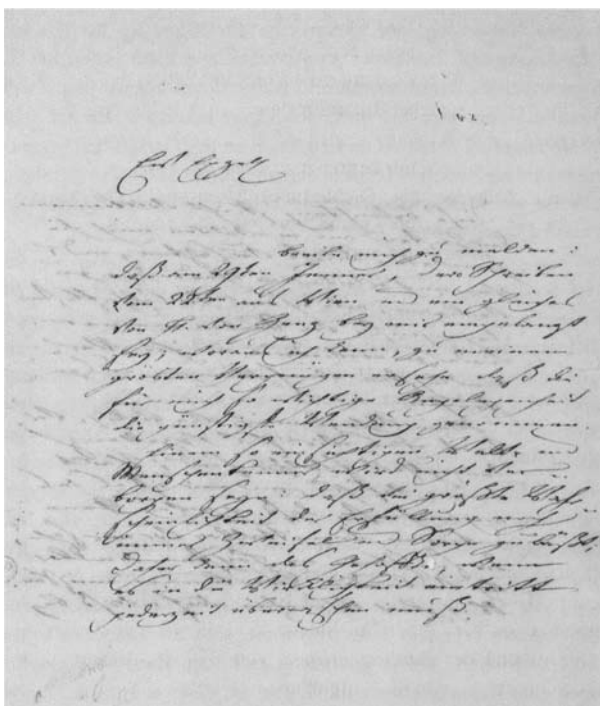 Ew. 
beeile mich zu melden:
daß am 29sten Januar, dero Schreiben
vom 23sten aus Wien und ein gleiches
von H. von Genz bey mir eingelangt
sey; woraus ich denn, zu meinem
größten Vergnügen ersehe daß die
für mich so wichtige Angelegenheit
die günstigste Wendung genommen.
Einem so einsichtigen Welt- und
Menschenkenner wird nicht ver-
borgen seyn, daß die größte Wahr-
scheinlichkeit der Erfüllung noch
immer Zweifel und Sorge zuläßt;
daher denn das Gehoffte, wenn
es in die Wirklichkeit eintritt
jederzeit überraschen muß.